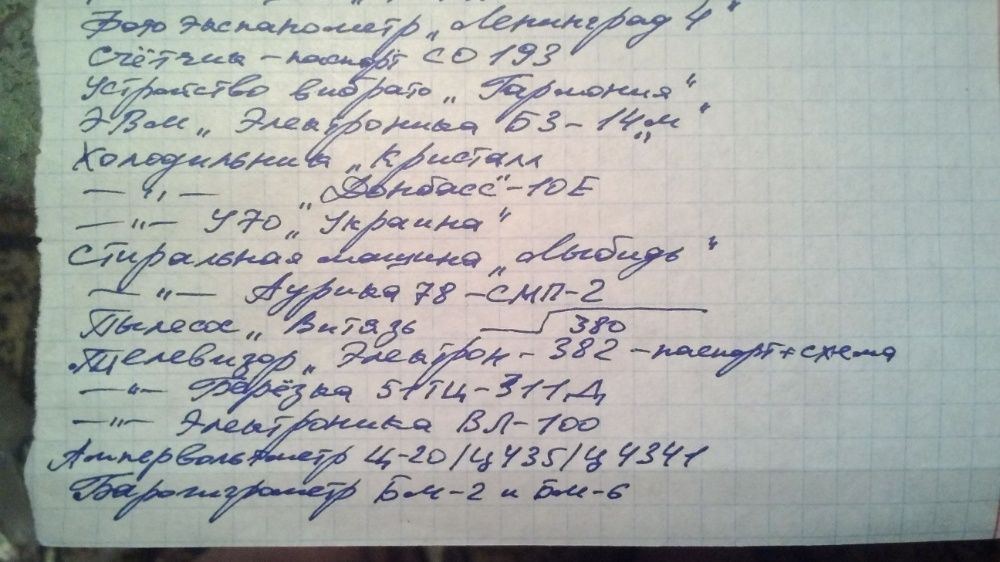 Фото экспанометр „Ленинград 4"
Счётчик - паспорт СО 193
Устройство вибрато „Гармония"
ЭВМ „Электроника Б3-14м"
Холодильника „Кристалл"
— " — „Донбасс"-10Е
— " — У70 „Украина"
Стиральная машина „Лыбидь"
— " — Аурика 78 - СМП-2
Пылесос „Витязь 380
Телевизор „Электрон - 382 - паспорт+схема
— " — Берёзка 51ТЦ-311Д
— " — Электроника ВЛ-100
Ампервольтметр Ц-20/Ц435/Ц4341
Барогигрометр БМ-2 и БМ-6